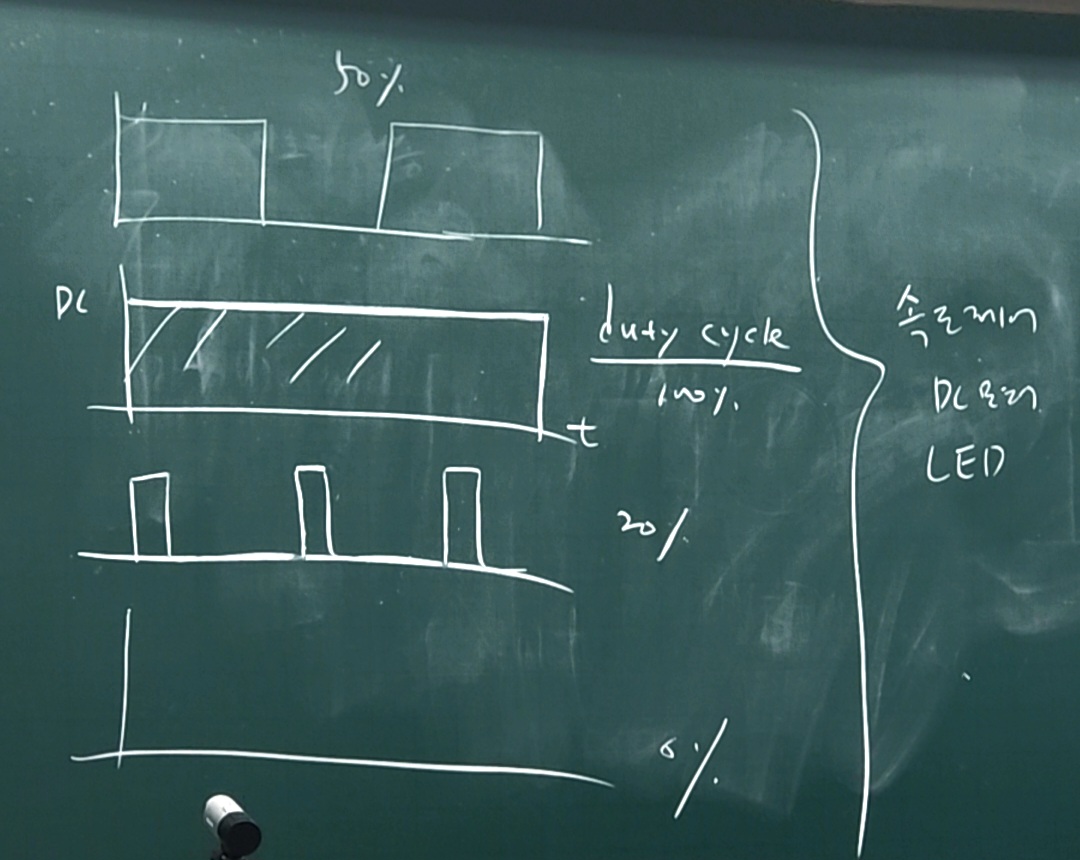 50%
DC
duty cycle
100%
t
20%
0%
속도제어
DC모터
LED